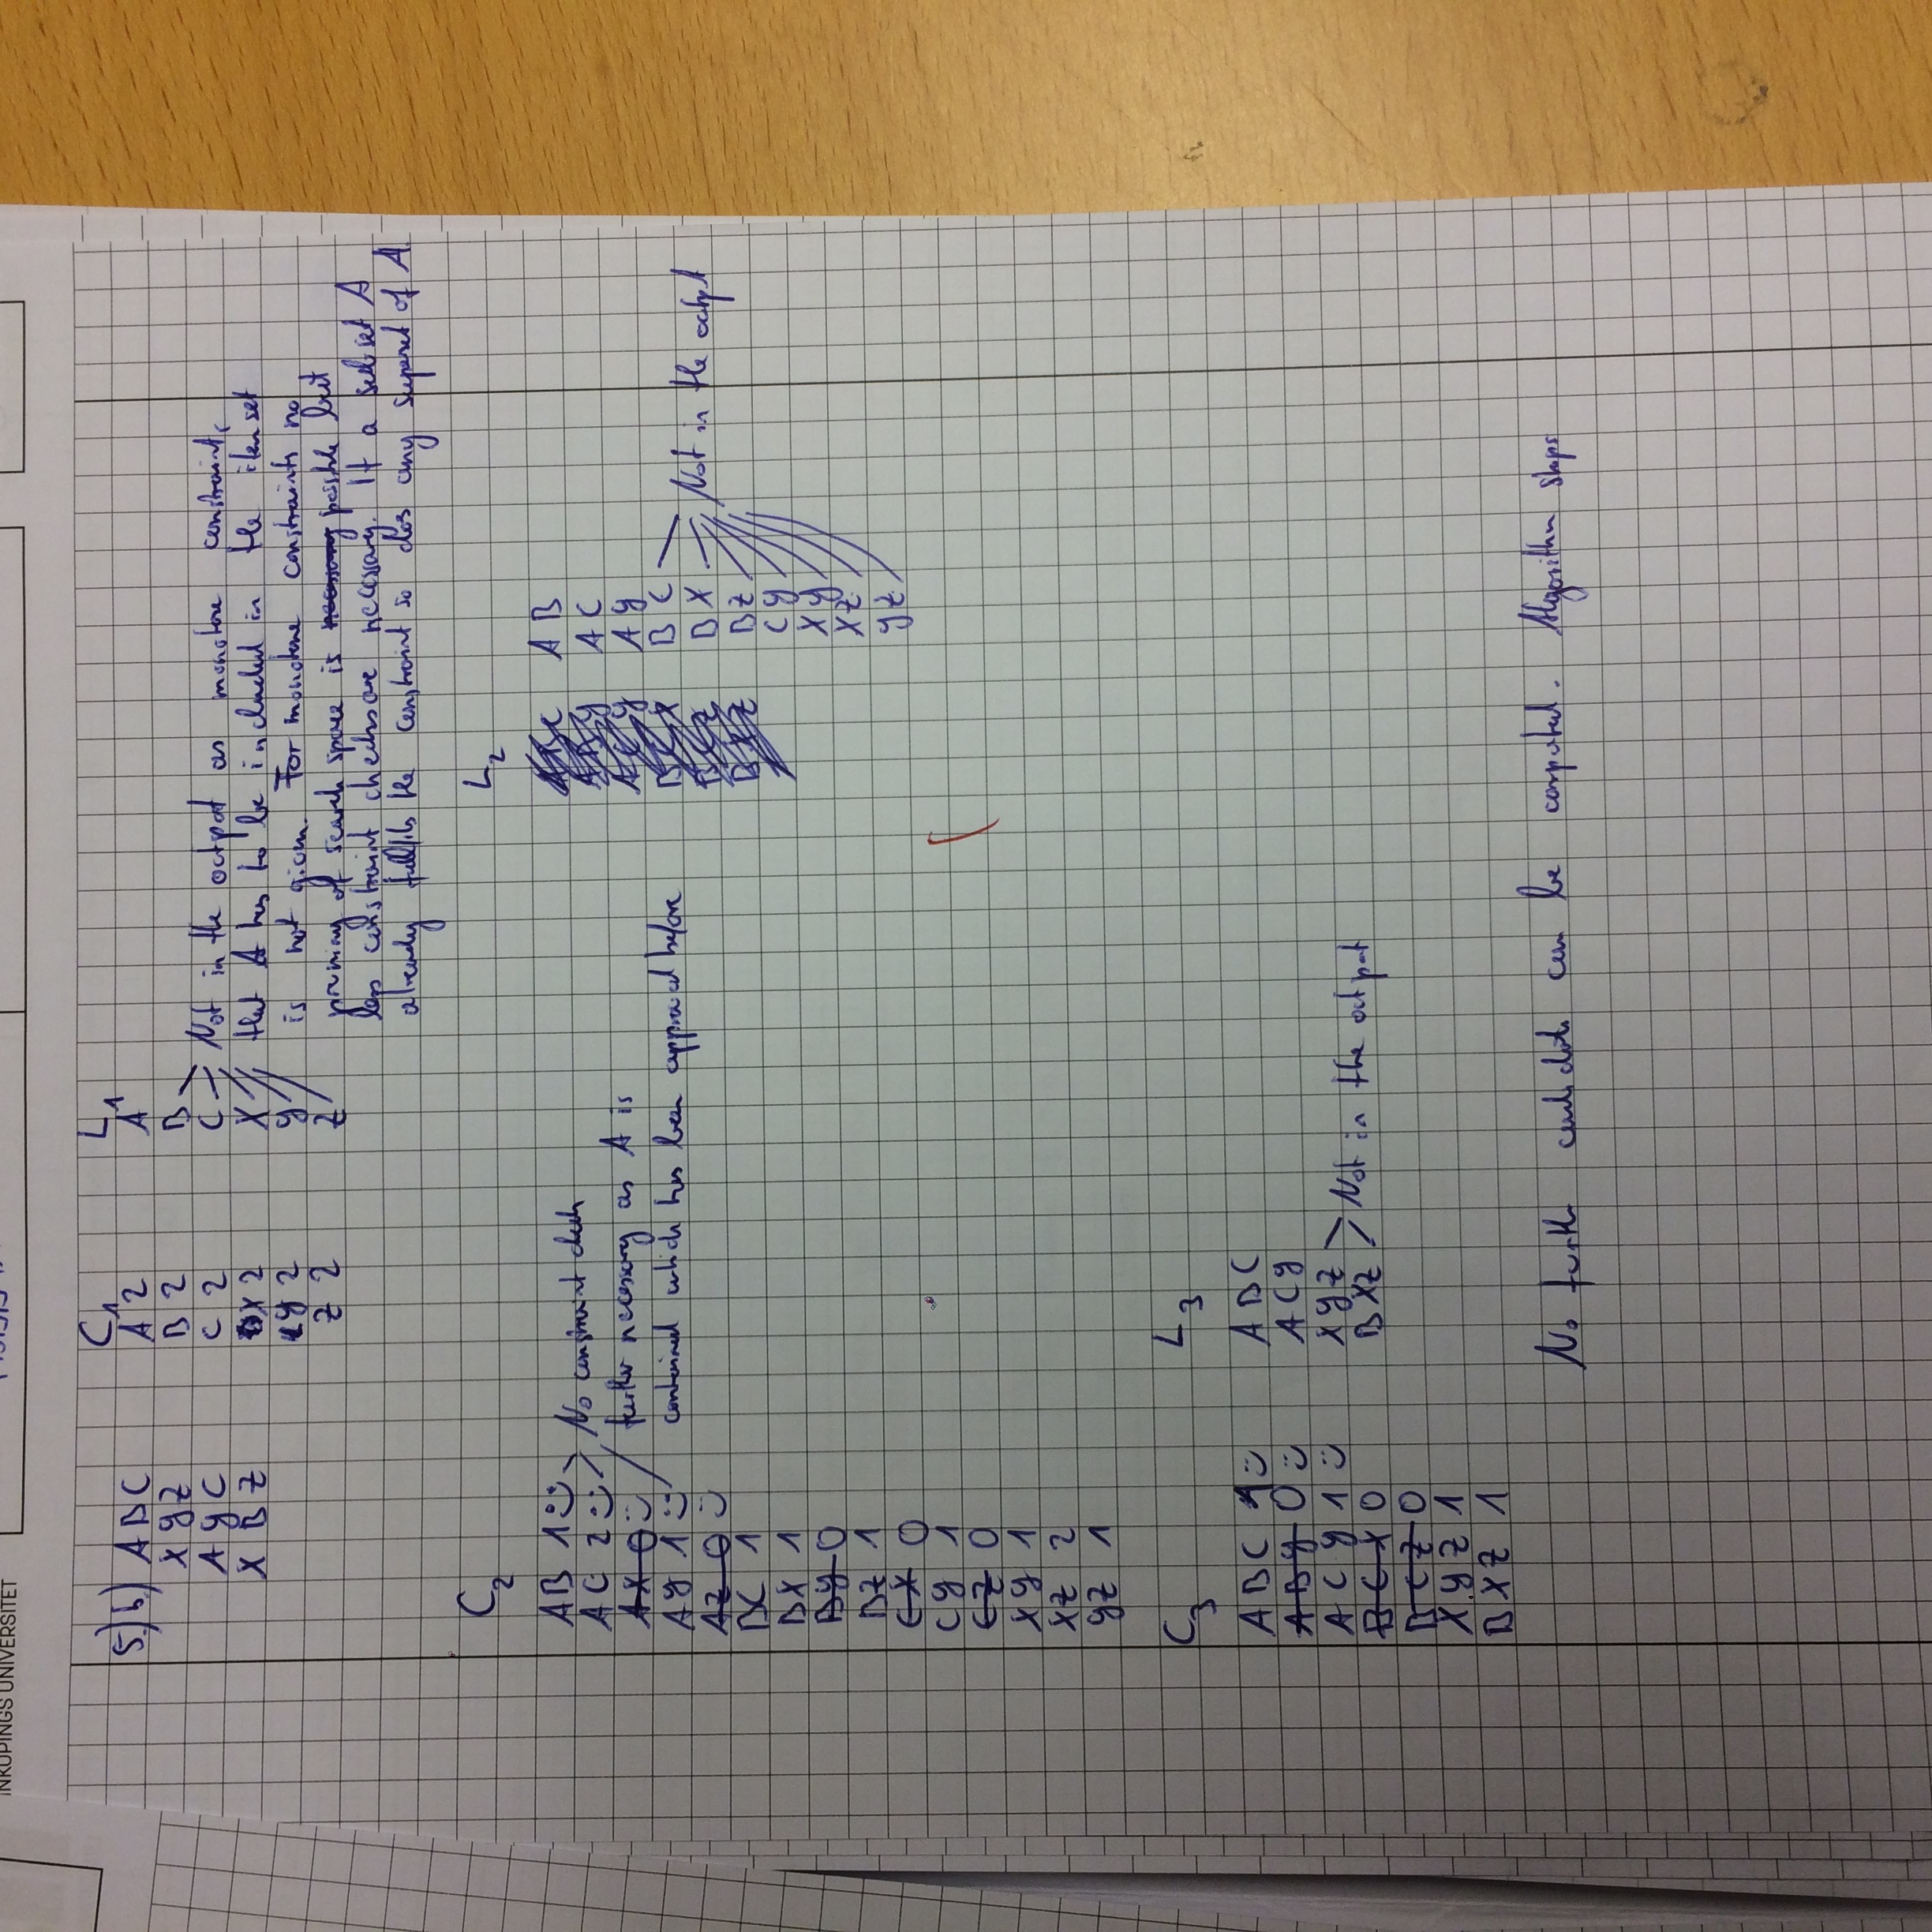 INKÖPINGS UNIVERSITET
5.) b.) ABC
XYZ
AYC
XBZ
C1
A 2
B 2
C 2
X 2
Y 2
Z 2
L1
A
B
C
X
Y
Z
Not in the output as monotone constraint,
that A has to be included in the itemset
is not given. For monotone constraints no
pruning of search space is necessary possible but
less constraint checks are necessary. If a subset A
already fullfils the constraint so does any superset of A.
C2
AB 1
AC 2
AX 0
AY 1
AZ 0
BC 1
BX 1
BY 0
BZ 1
CX 0
CY 1
CZ 0
XY 1
XZ 2
YZ 1
No constraint check
further necessary as A is
contained which has been approved before
L2
AB
AC
AY
BC
BX
BZ
CY
XY
XZ
YZ
Not in the outpt
C3
ABC 1
ABY 0
ACY 1
BCX 0
BCZ 0
XYZ 1
BXZ 1
L3
ABC
ACY
XYZ
BXZ
Not in the output
No further candidats can be computed. Algorithm stops